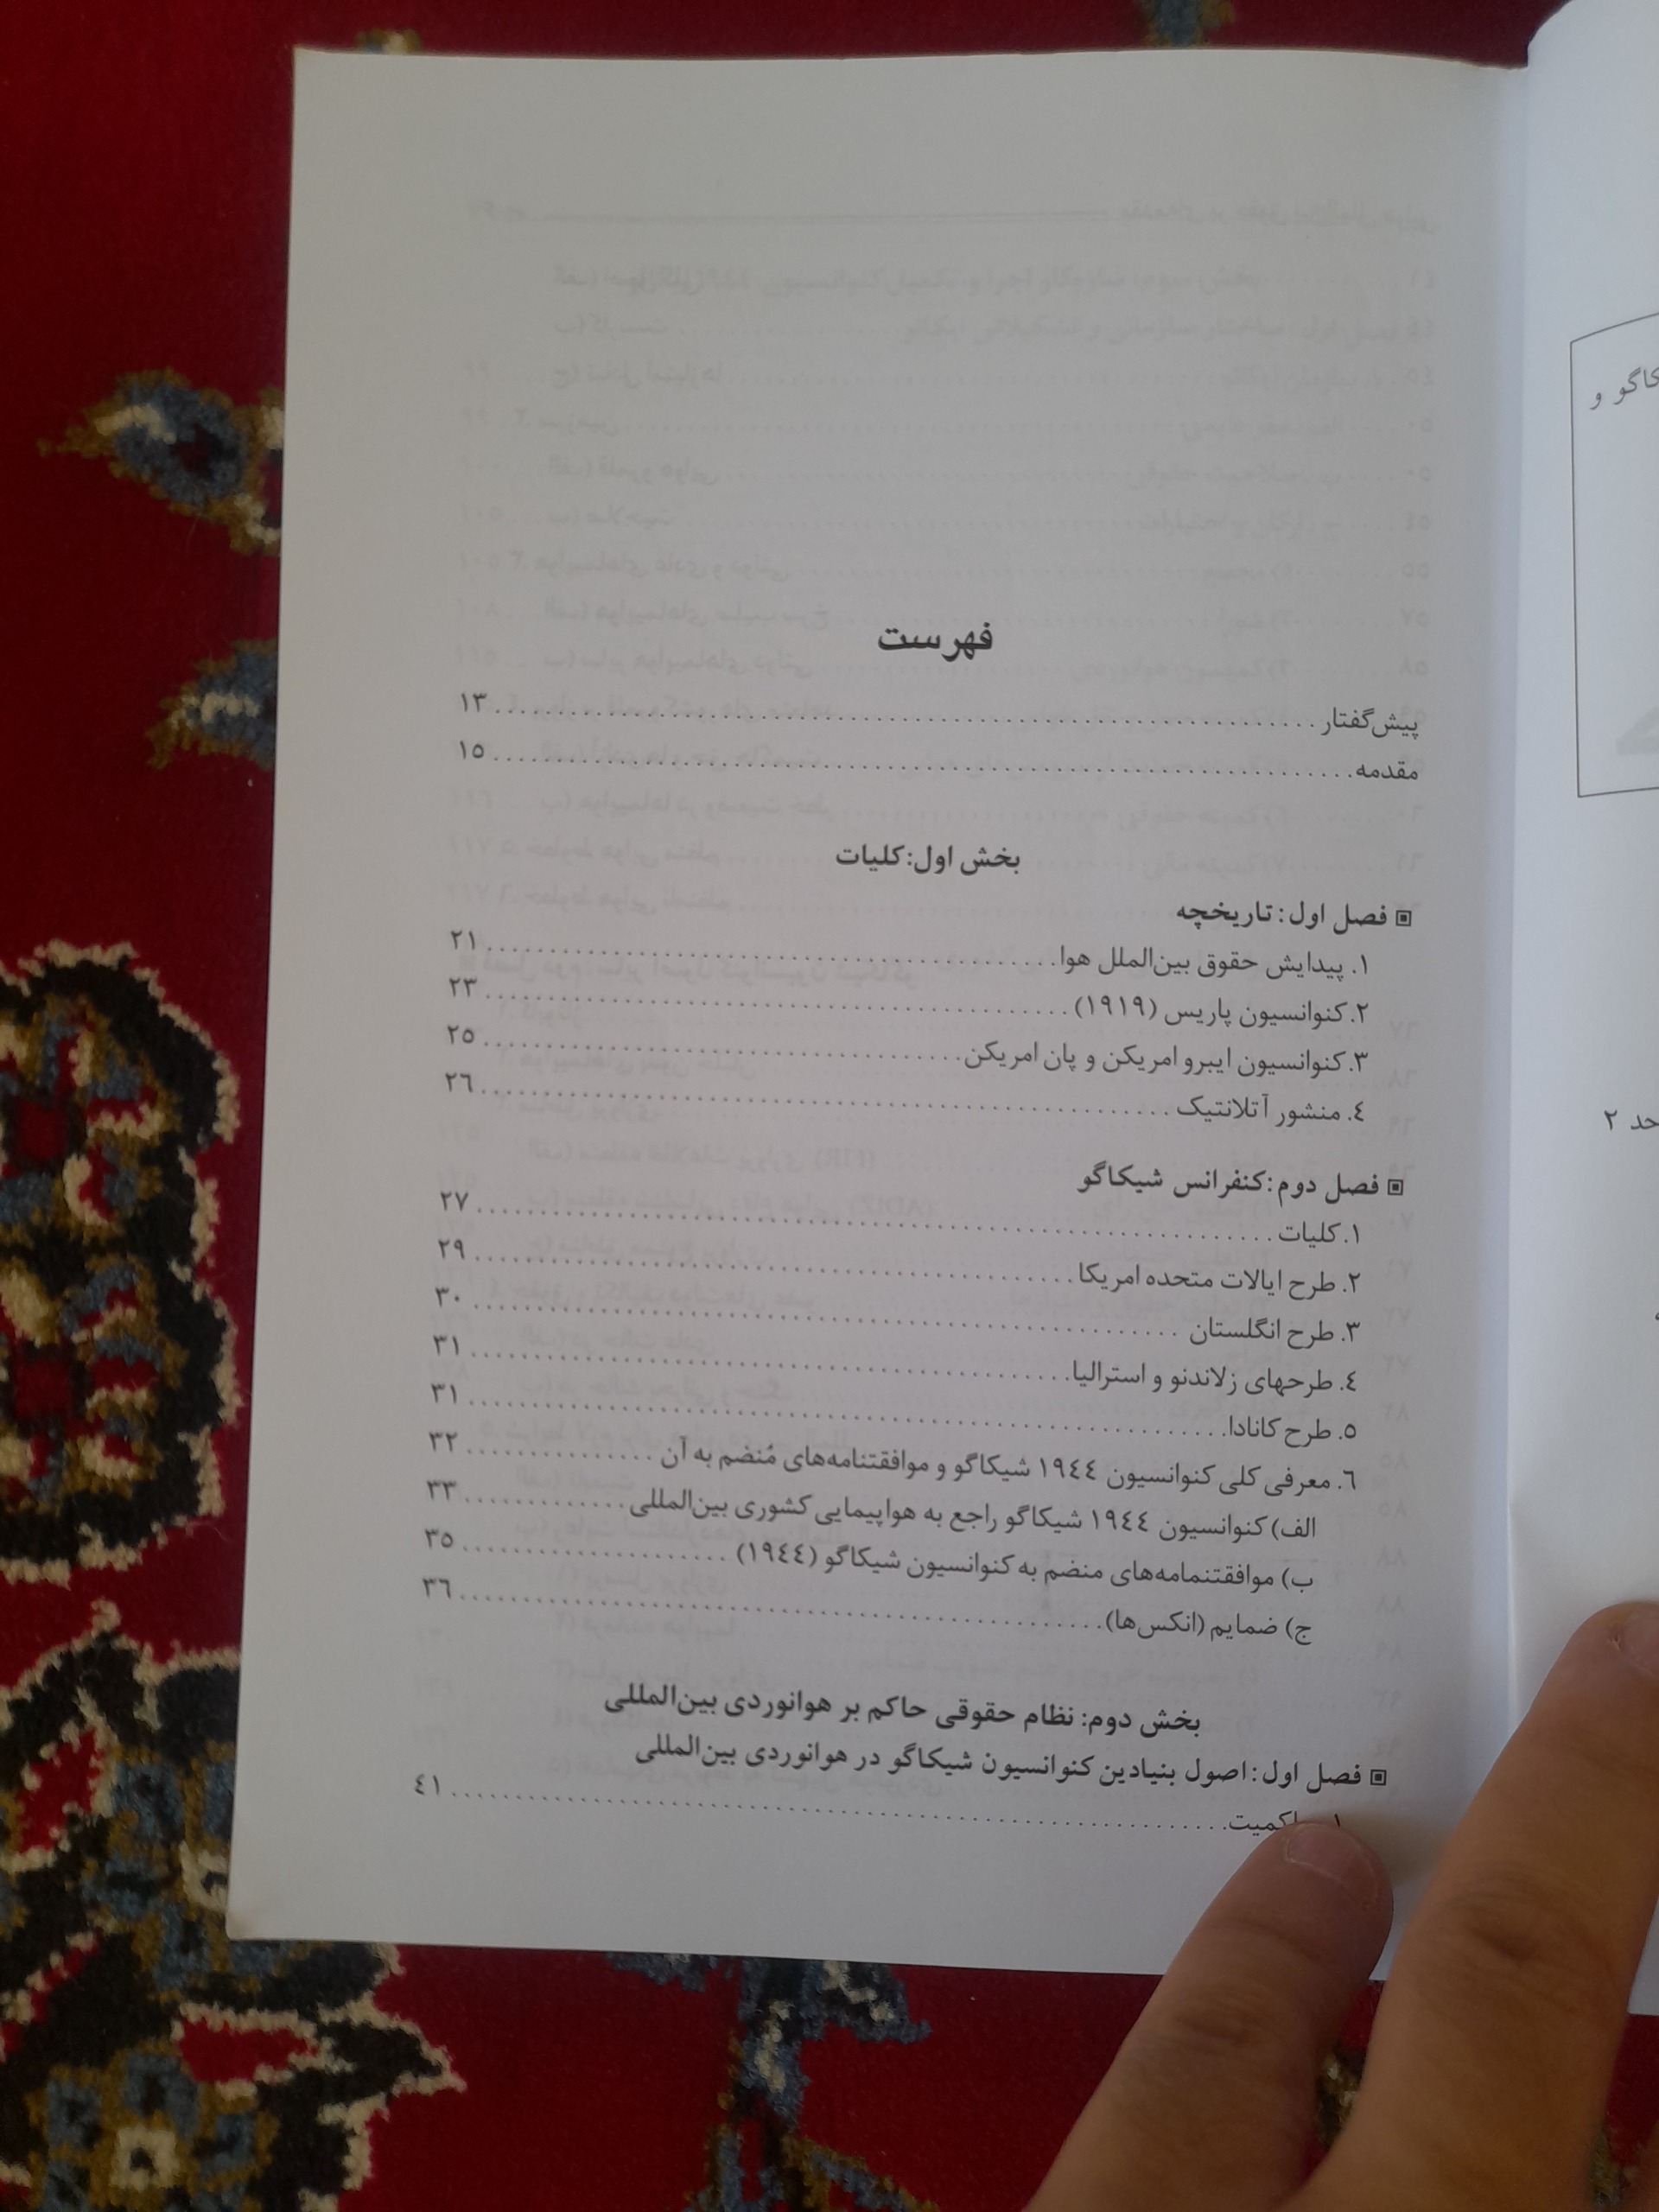 فهرست
پیش‌گفتار ........ ۱۳
مقدمه ........ ۱۵
بخش اول: کلیات
فصل اول: تاریخچه
۱. پیدایش حقوق بین‌الملل هوا ........ ۲۱
۲. کنوانسیون پاریس (۱۹۱۹) ........ ۲۳
۳. کنوانسیون ایبرو امریکن و پان امریکن ........ ۲۵
٤. منشور آتلانتیک ........ ۲٦
فصل دوم: کنفرانس شیکاگو
۱. کلیات ........ ۲۷
۲. طرح ایالات متحده امریکا ........ ۲۹
۳. طرح انگلستان ........ ۳۰
٤. طرحهای زلاندنو و استرالیا ........ ۳۱
٥. طرح کانادا ........ ۳۱
٦. معرفی کلی کنوانسیون ۱۹٤٤ شیکاگو و موافقتنامه‌های مُنضم به آن ........ ۳۲
الف) کنوانسیون ۱۹٤٤ شیکاگو راجع به هواپیمایی کشوری بین‌المللی ........ ۳۳
ب) موافقتنمامه‌های منضم به کنوانسیون شیکاگو (۱۹٤٤) ........ ۳٥
ج) ضمایم (انکس‌ها) ........ ۳٦
بخش دوم: نظام حقوقی حاکم بر هوانوردی بین‌المللی
فصل اول: اصول بنیادین کنوانسیون شیکاگو در هوانوردی بین‌المللی
۱. ........ ٤۱
حد ۲